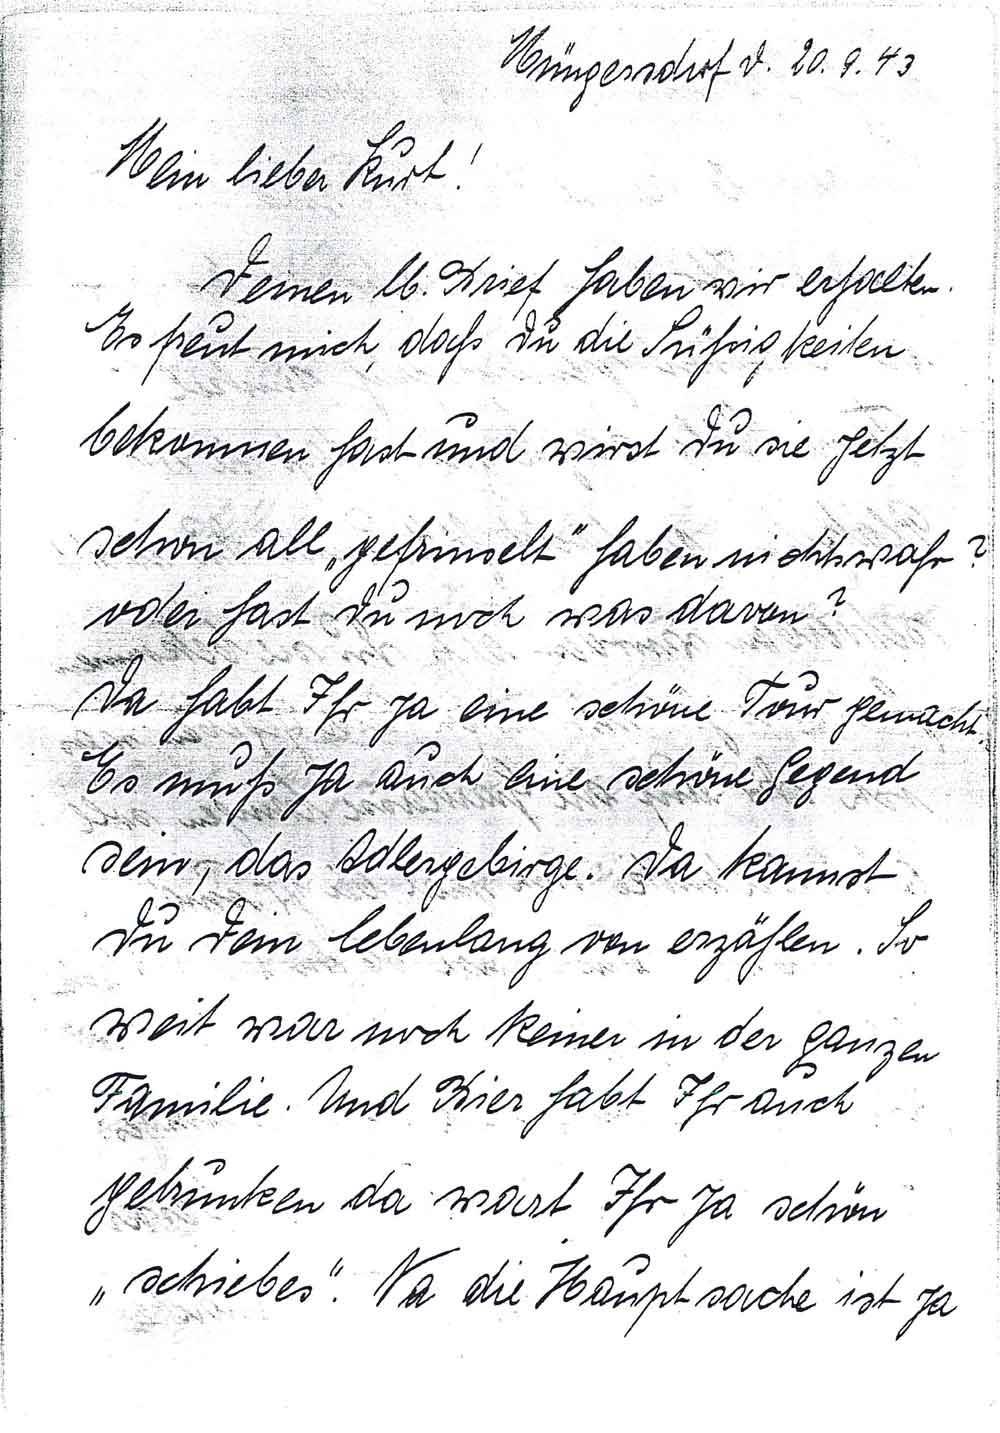 Müngersdorf d. 20.9.43
Mein lieber Kurt!
Deinen lb. Brief haben wir erhalten.
Es freut mich, dass Du die Süßigkeiten
bekommen hast und wirst Du sie jetzt
schon all „gefrinselt" haben nichtwahr?
oder hast Du noch was davon?
Da habt Ihr ja eine schöne Tour gemacht.
Es muß ja auch eine schöne Gegend
sein, das Adlergebirge. Da kannst
Du Dein lebenlang von erzählen. So
weit war noch keiner in der ganzen
Familie. Und Bier habt Ihr auch
getrunken da wart Ihr ja schön
„schiebes". Na die Hauptsache ist ja